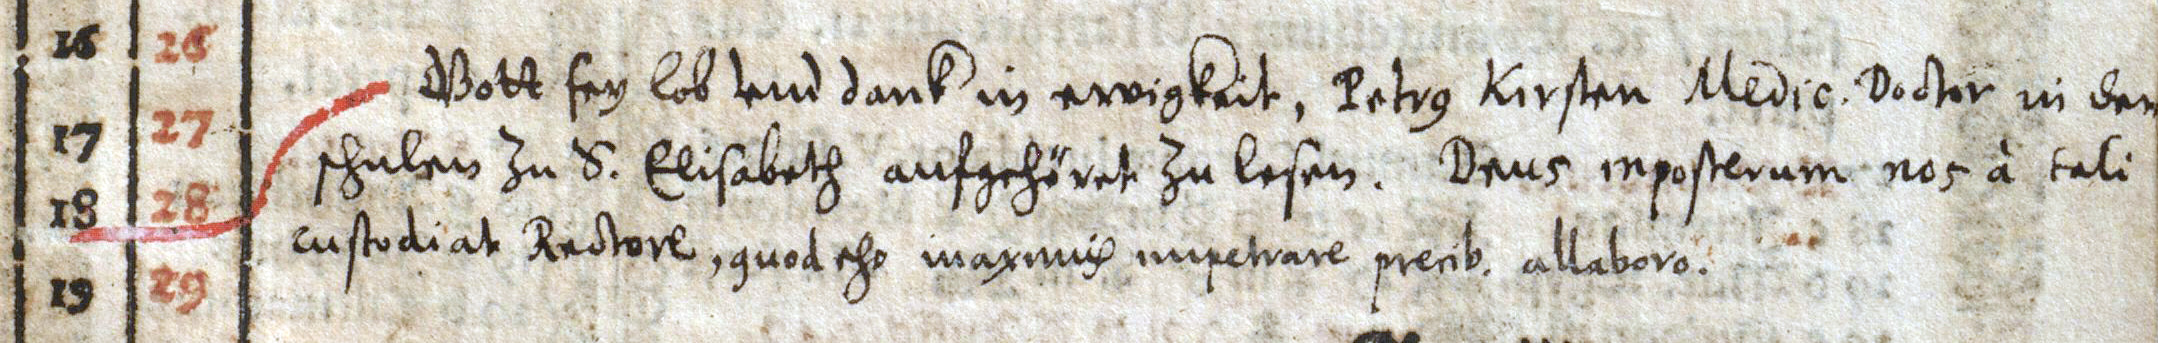 16 26
Gott sey lob vnd dank in ewigkeit, Petrus Kirsten Medic. Doctor in der
17 27
schulen zu S. Elisabeth aufgehöret zu lesen. Deus inposterum nos à tali
18 28
custodiat Rectore, quod ego maximis impetrare precib. allaboro.
19 29